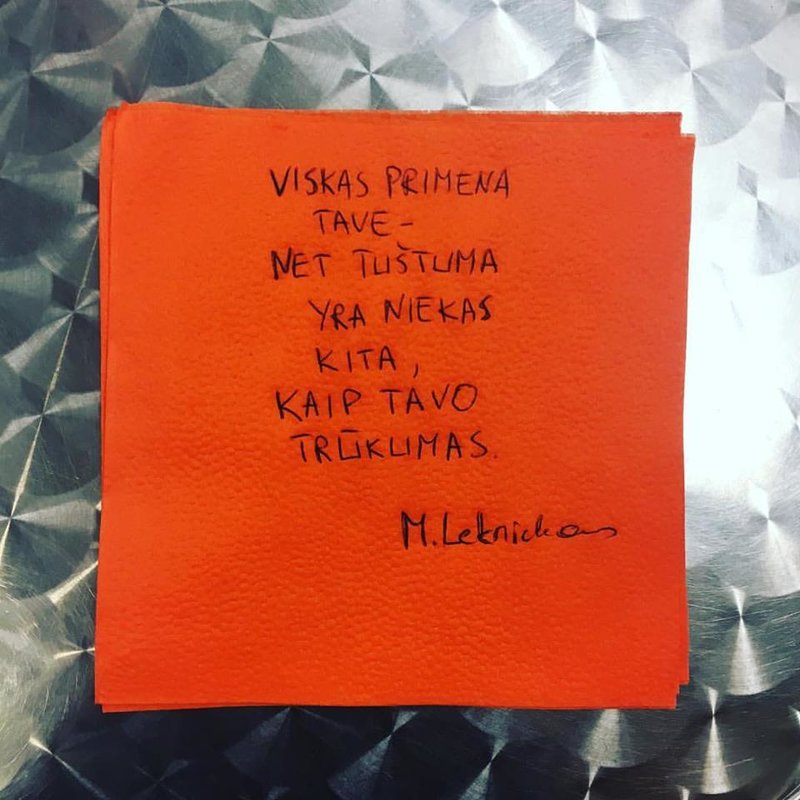 VISKAS PRIMENA
TAVE -
NET TUŠTUMA
YRA NIEKAS
KITA,
KAIP TAVO
TRŪKUMAS.
M. Leknickas